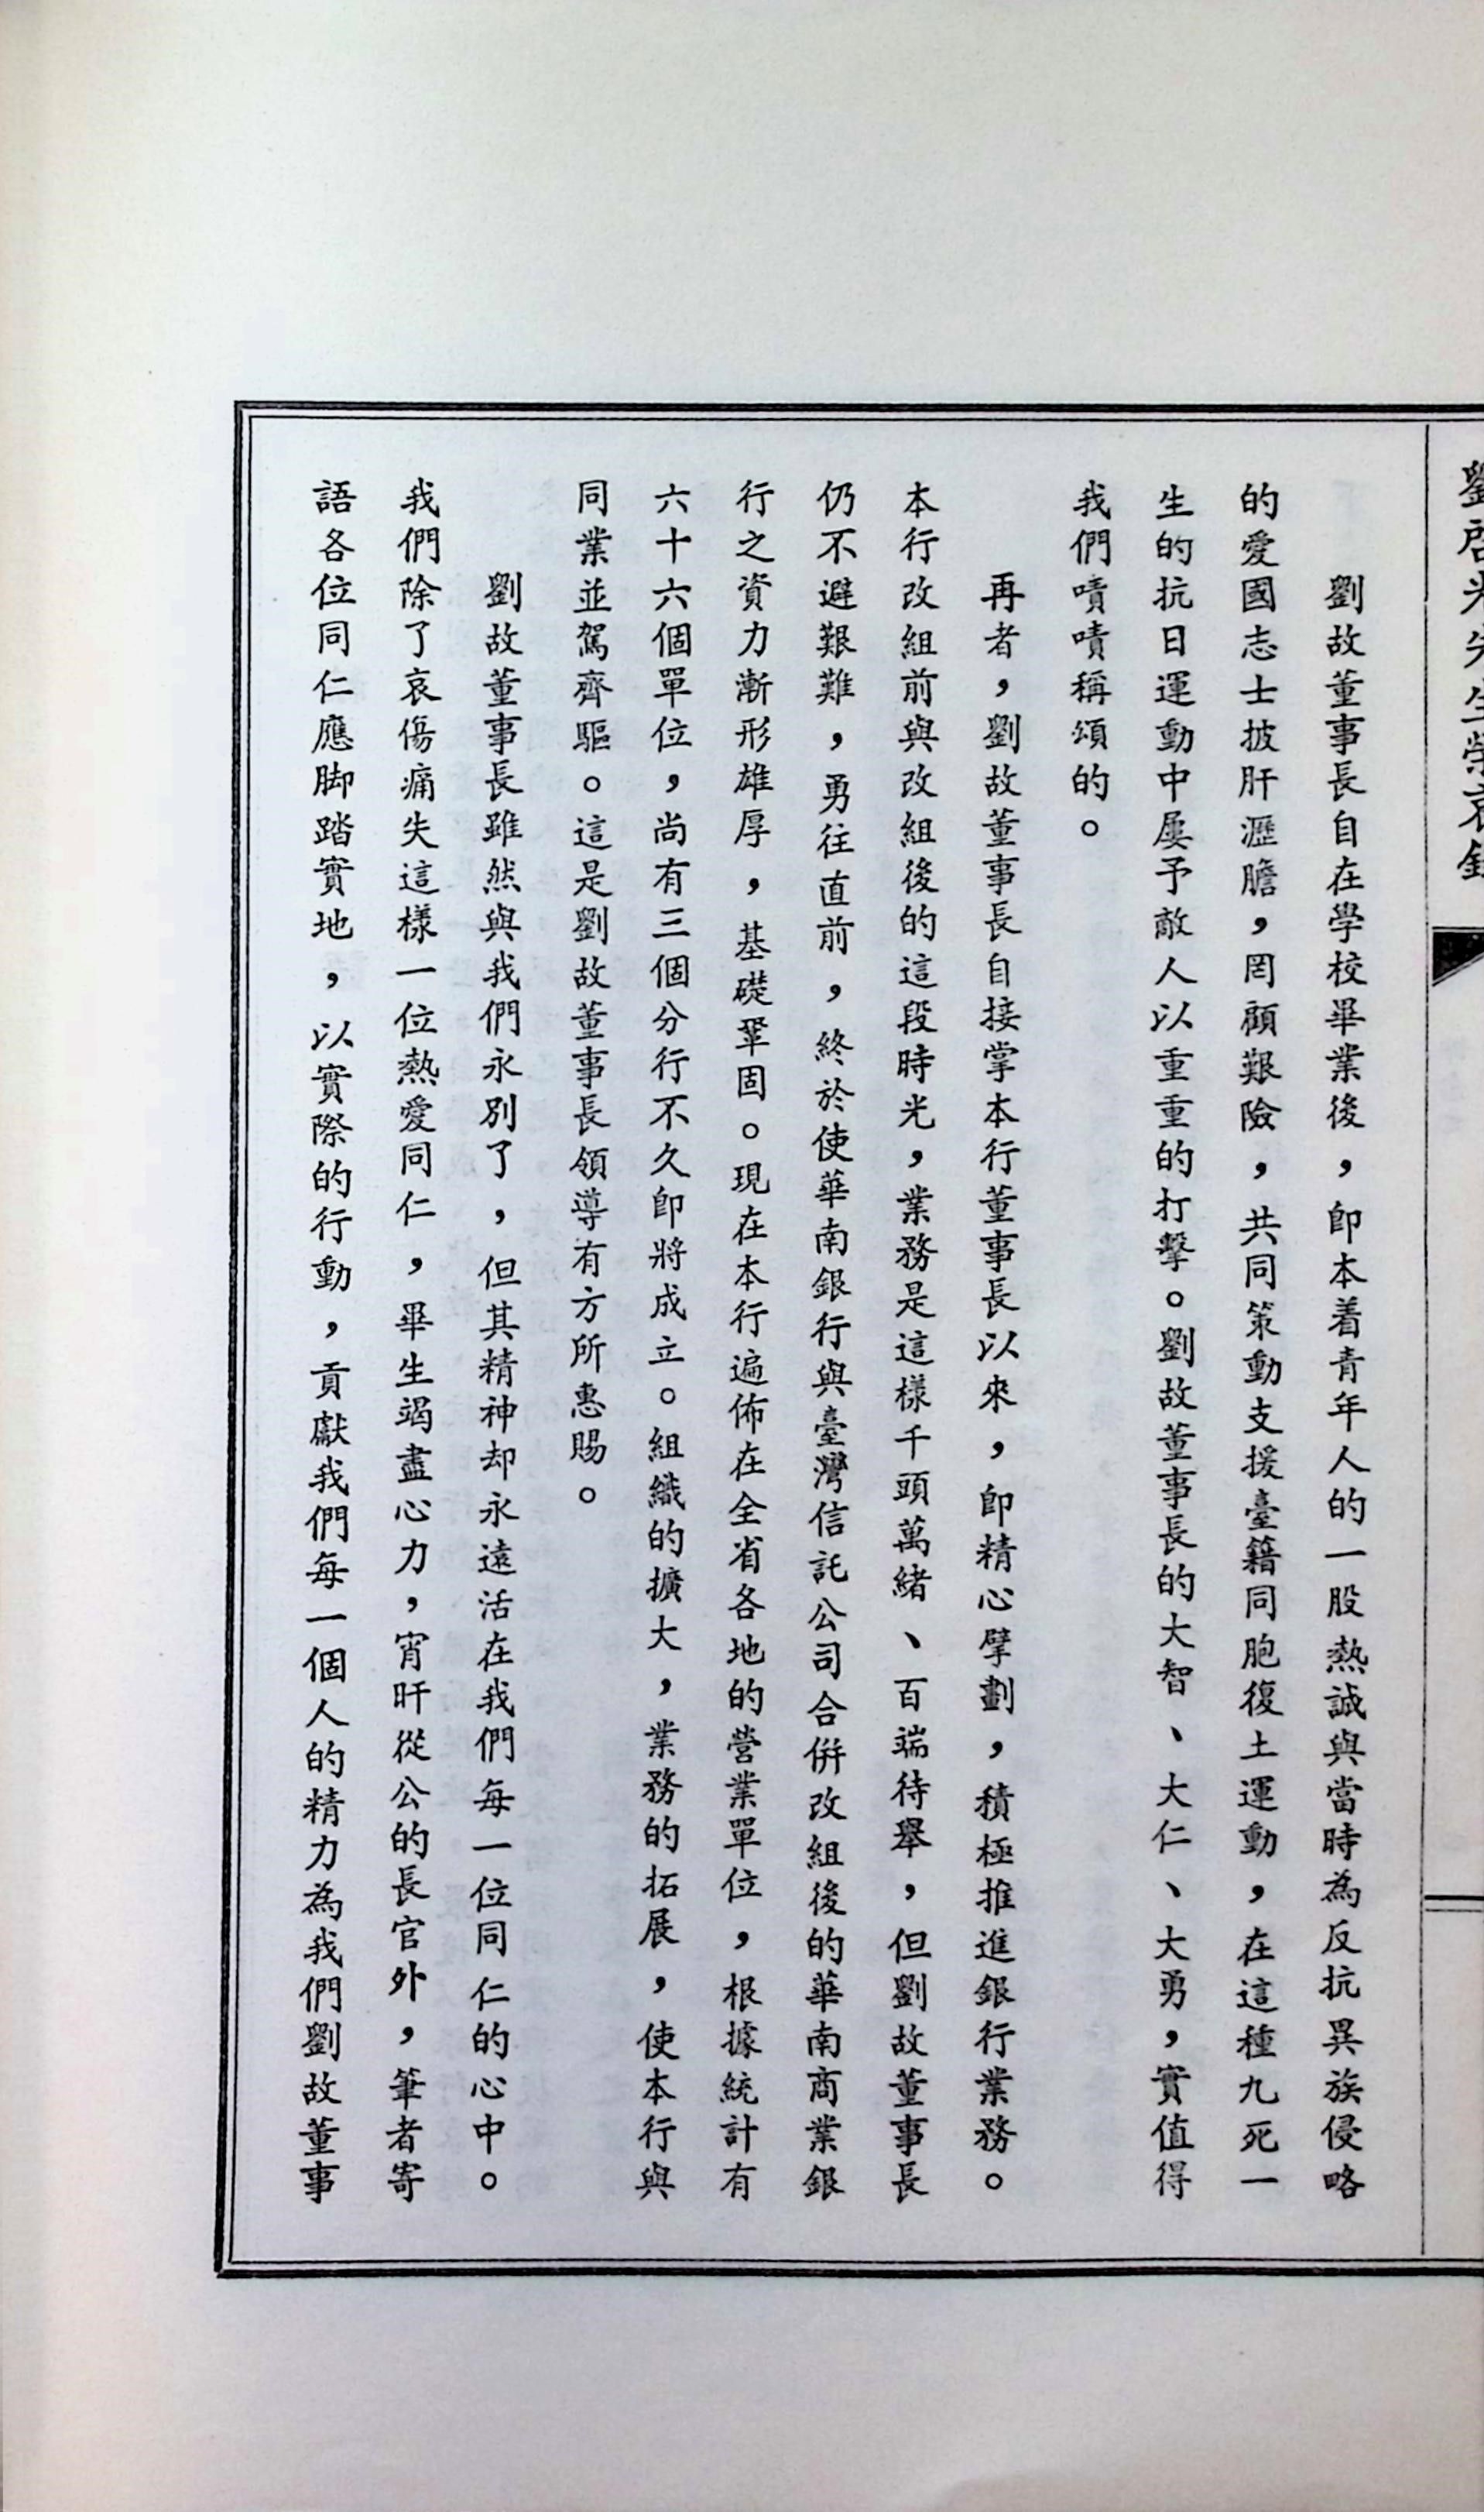 劉啓光先生榮哀錄
劉故董事長自在學校畢業後，卽本着青年人的一股熱誠與當時為反抗異族侵略
的愛國志士披肝瀝膽，罔顧艱險，共同策動支援臺籍同胞復土運動，在這種九死一
生的抗日運動中屢予敵人以重重的打擊。劉故董事長的大智、大仁、大勇，實值得
我們嘖嘖稱頌的。
再者，劉故董事長自接掌本行董事長以來，卽精心擘劃，積極推進銀行業務。
本行改組前與改組後的這段時光，業務是這樣千頭萬緒、百端待舉，但劉故董事長
仍不避艱難，勇往直前，終於使華南銀行與臺灣信託公司合併改組後的華南商業銀
行之資力漸形雄厚，基礎鞏固。現在本行遍佈在全省各地的營業單位，根據統計有
六十六個單位，尚有三個分行不久卽將成立。組織的擴大，業務的拓展，使本行與
同業並駕齊驅。這是劉故董事長領導有方所惠賜。
劉故董事長雖然與我們永別了，但其精神却永遠活在我們每一位同仁的心中。
我們除了哀傷痛失這樣一位熱愛同仁，畢生竭盡心力，宵旰從公的長官外，筆者寄
語各位同仁應脚踏實地，以實際的行動，貢獻我們每一個人的精力為我們劉故董事